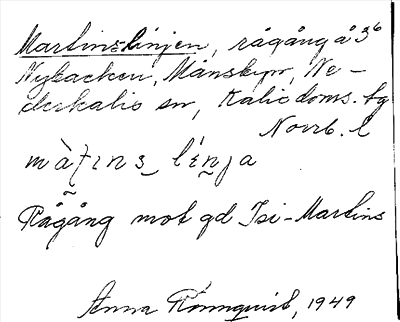 Martinslinjen, rågång å 3⁶
Nybacken, Månsbyn, Ne-
derkalix sn, Kalix doms. tg
Norrb. l
Rågång mot gd Isi-Martins
Anna Rönnquist, 1949